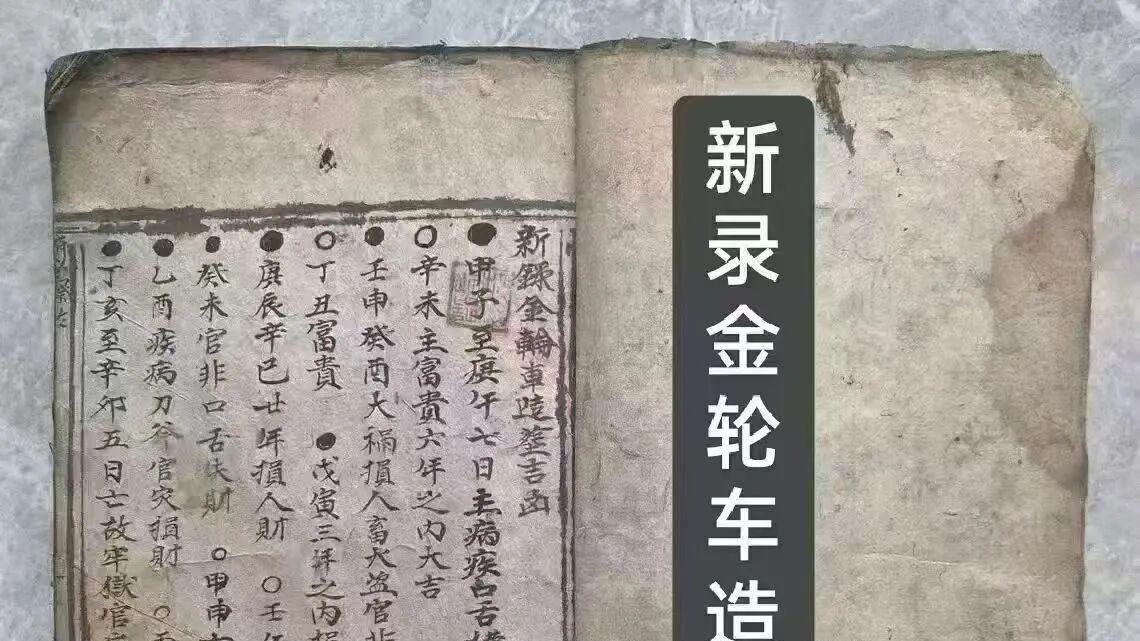 新录金轮车造
新錄金輪車造塟吉凶
●甲子至庚午七日主病疾口舌
○辛未主富貴六年之内大吉
●壬申癸酉大禍損人畜火盗官非
○丁丑富貴 ●戊寅三年之内損
●庚辰辛巳廿年損人財 ○壬午
●癸未官非口舌失財 ○甲申
●乙酉疾病刀谷官灾損財 ○
●丁亥至辛卯五日亡故牢獄官